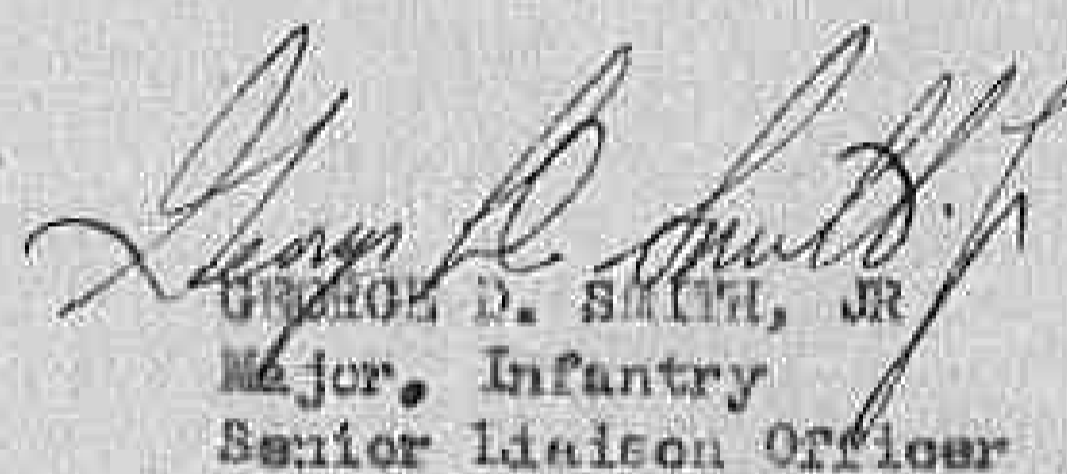 George D Smith Jr
GEORGE D. SMITH, JR
Major. Infantry
Senior Liaison Officer